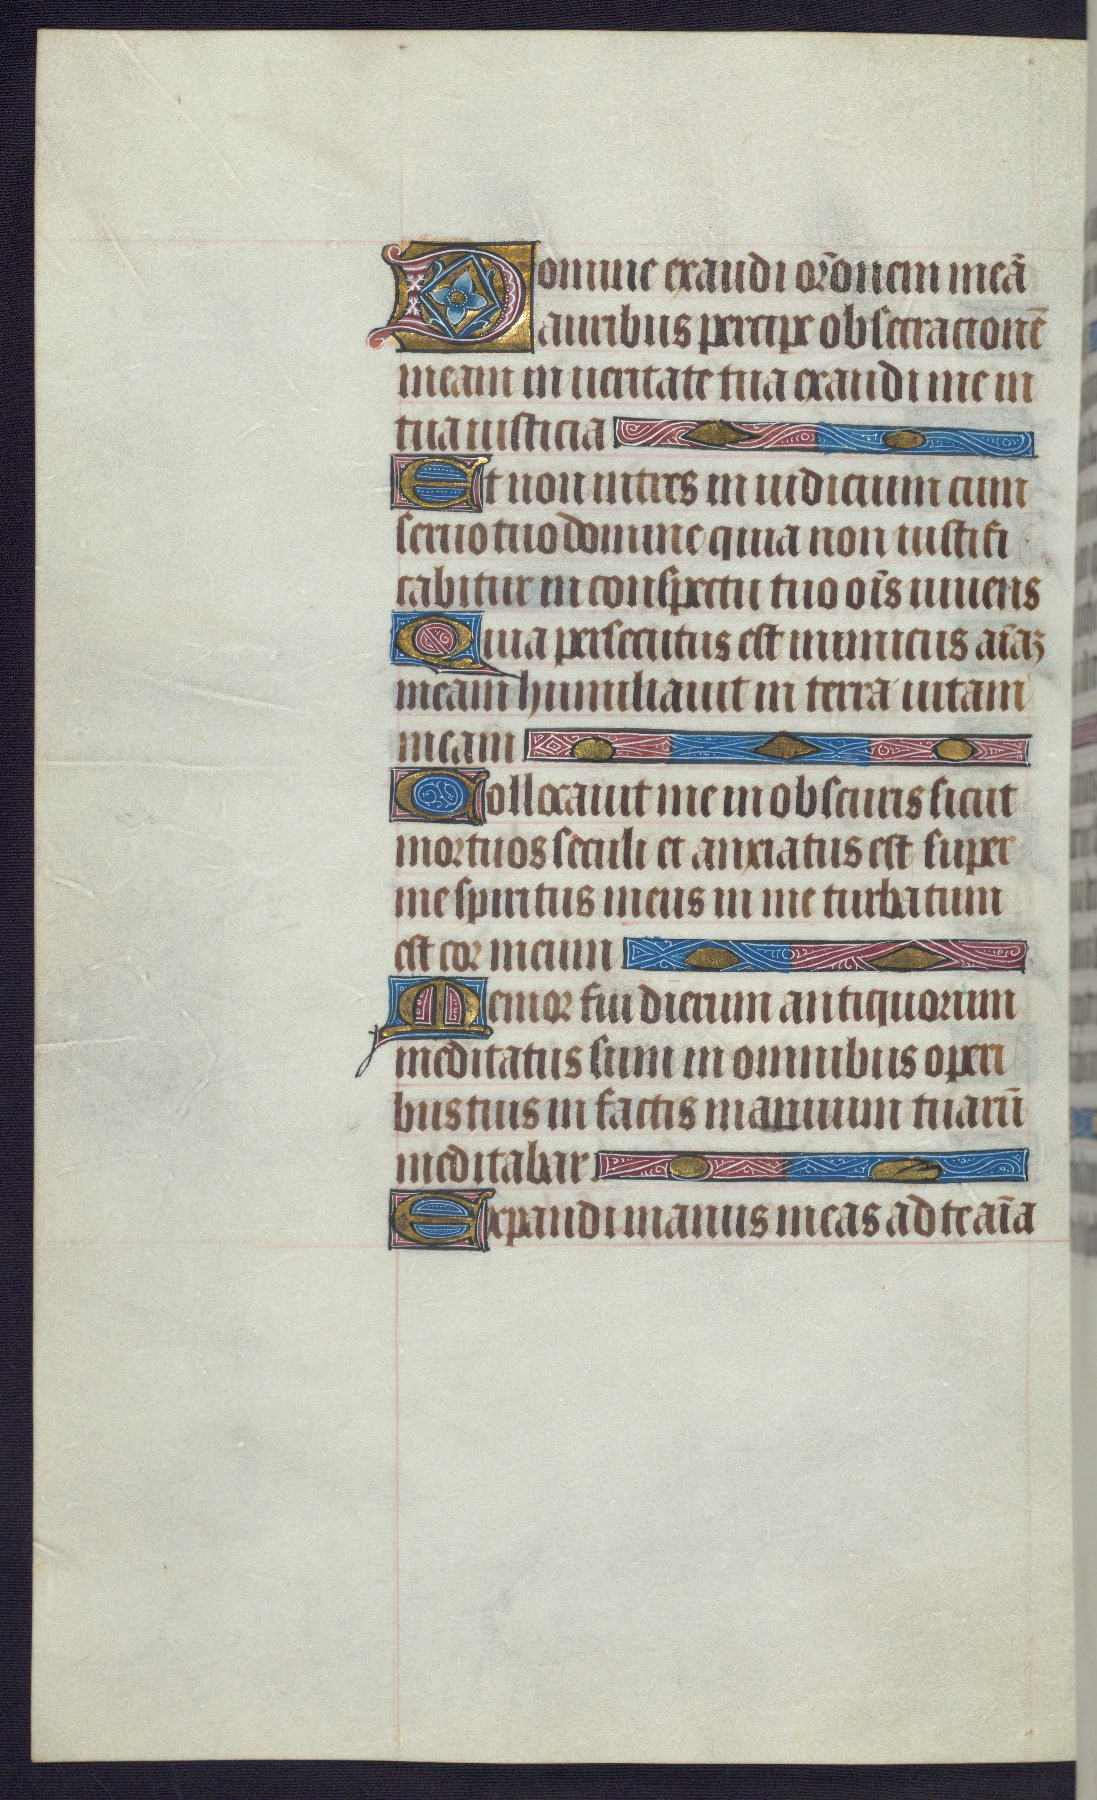 Domine exaudi or̄onem meā
auribus percipe obsecracionē
meam in ueritate tua exaudi me in
tua iusticia
Et non intres in iudicium cum
seruo tuo domine quia non iustifi
cabitur in conspectu tuo oīs uiuens
Quia persecutus est inimicus aīaꝫ
meam humiliauit in terra uitam
meam
Collocauit me in obscuris sicut
mortuos seculi et anxiatus est super
me spiritus meus in me turbatum
est cor meum
Memor fui dierum antiquorum
meditatus sum in omnibus operi
bus tuis in factis manuum tuarū
meditabar
Expandi manus meas ad te aīa